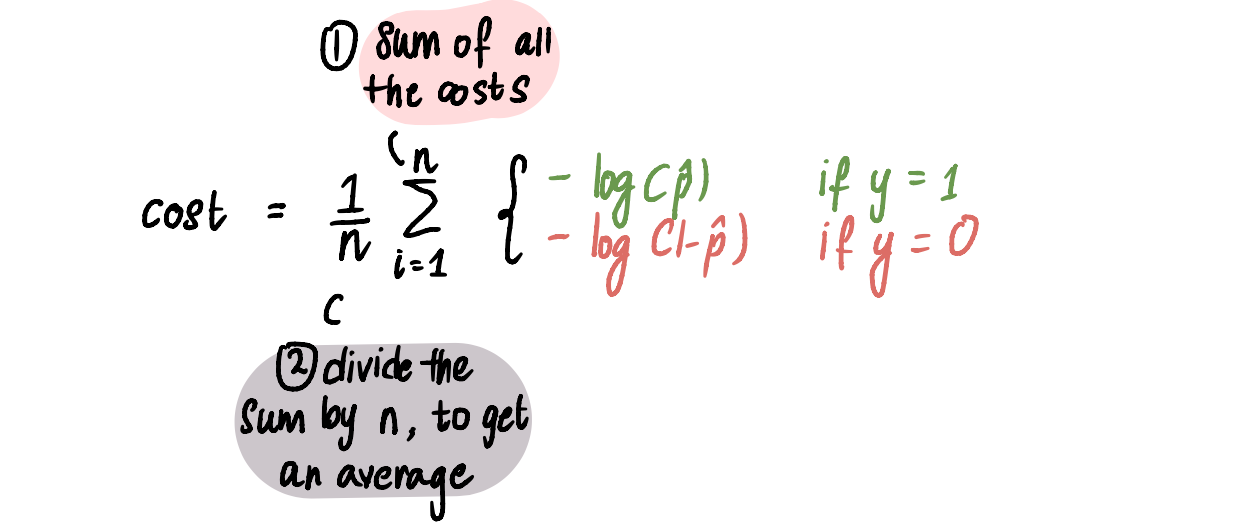 ① Sum of all
the costs
cost = 1/n n Σ i=1 { - log(p̂) if y = 1
- log(1-p̂) if y = 0
② divide the
Sum by n, to get
an average